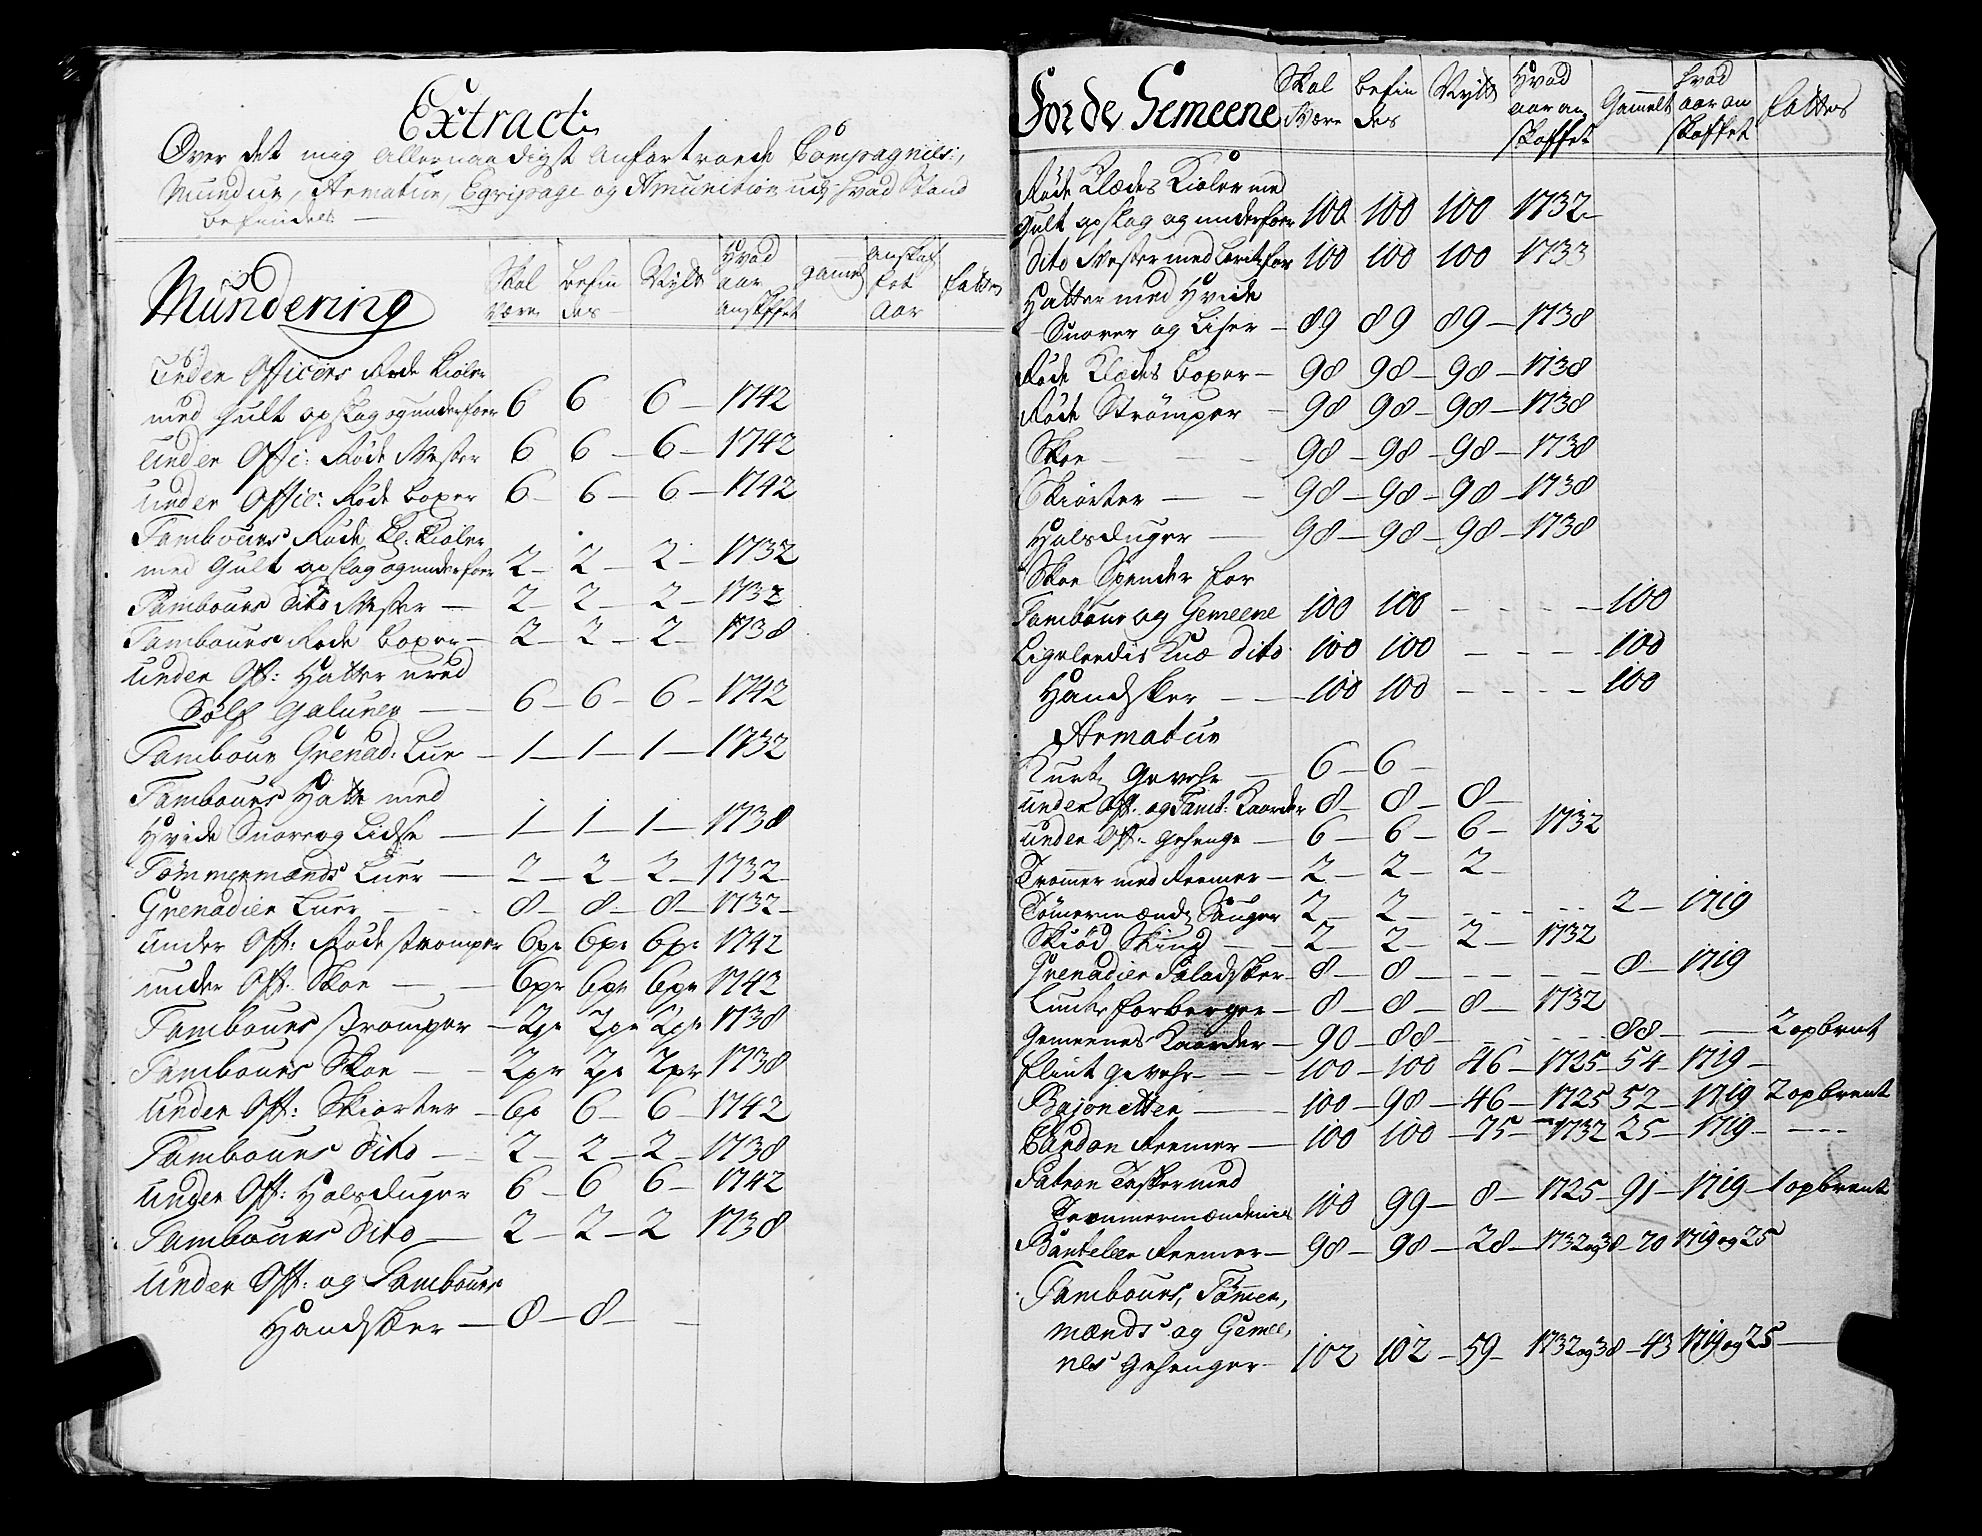 Extract
Over det mig Allernaadigst Anfortroede Compagnies:,
Mundur, Armatur, Eqvipage og Amunition udj hvad Stand
befindes —
Mundering
Skal være
befindes
Nylt
Hvad aar anskaffet
gamelt
anskaffet aar
fattes
Under Officers Røde Kioler
med Gult opslag og underfoer 6 6 6 — 1742
Under Offi: Røde Vester 6 6 — 6 — 1742
Under Offic: Røde boxer 6 — 6 — 6 — 1742
Tambours Røde Kl: Kioler
med Gult opslag og underfoer 2 — 2 — 2 — 1732
Tambours dito Vester — 2 — 2 — 2 — 1732
Tambours Røde boxer — 2 — 2 — 2 — 1738
Under Off: Hatter med
Sølf galuner — 6 — 6 — 6 — 1742
Tambour Grenad: Lue — 1 — 1 — 1 — 1732
Tambours Hatt med
Hvide Snore og Lidse — 1 — 1 — 1 — 1738
Tømmermænds Luer — 2 — 2 — 2 — 1732
Grenadier Luer — 8 — 8 — 8 — 1732
Under Off: Røde strømper 6pr 6pr 6pr 1742
under Off: Skoe — 6pr 6pr 6pr 1742
Tambours strømper — 2pr 2pr 2pr 1738
Tambours Skoe — 2pr 2pr 2pr 1738
Under Off: Skiorter — 6 6 — 6 — 1742
Tambours dito — 2 — 2 — 2 — 1738
Under Off: Halsduger 6 — 6 6 — 1742
Tambours dito — 2 — 2 — 2 1738
Under Off: og Tambours
Handsker — 8 — 8 —
For de Gemeene
Skal være
befindes
Nylt
Hvad aar anskaffet
Gamelt
hvad aar anskaffet
fattes
Røde Klædes Kioler med
Gult opslag og underfoer 100 100 100 1732
dito Vester med Lerritzfor 100 100 100 1733
Hatter med Hvide
Snorer og Liser — 89 89 89 — 1738
Røde Klædes boxer — 98 98 — 98 — 1738
Røde Strømper — 98 98 — 98 — 1738
Skoe — 98 — 98 — 98 — 1738
Skiorter — 98 — 98 — 98 — 1738
Halsduger — 98 — 98 — 98 — 1738
Skoe Spender for
Tambour og Gemeene 100 100 — — — 100
Ligeledis Knæ dito 100 100 — — — 100
Handsker — 100 100 — — — 100
Armatur
Kurtz gevehr — 6 — 6 —
Under Off: og Tamb: Kaarder 8 — 8 — 8 —
Under Off: gehenge — 6 — 6 — 6 — 1732
Trommer med Reemer — 2 — 2 — 2 —
Tømermændz Sauger 2 — 2 — — — 2 — 1719
Skiød Skind — 2 — 2 — 2 — 1732
Grenadier Paladsker — 8 — 8 — — — 8 — 1719
Lunte forberger — 8 — 8 — 8 — 1732
Gemeenes Kaarder — 90 — 88 — — — 88 — — 2 opbrent
flint gevehr — 100 — 100 46 — 1725 — 54 — 1719 —
Bajonetter — 100 — 98 — 46 — 1725 52 — 1719 2 opbrent
Cardon Reemer — 100 100 — 75 — 1732 25 — 1719 — —
Patron Tasker med
100 99 — 8 — 1725 — 91 — 1719 — 1 opbrent
Banteleer Reemer — 98 — 98 — 28 — 1732 og 38 — 70 1719 og 25
Tambours, Tømer,
mænds og Gemee,
nes gehenger — 102 102 — 59 — 1732 og 38 — 43 1719 og 25 —